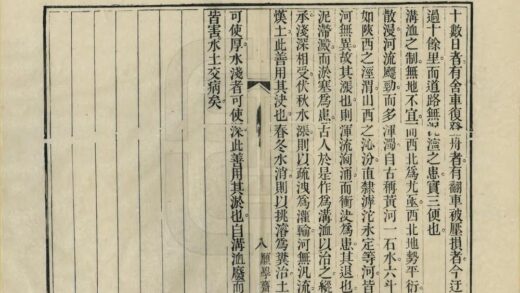 十數日者有舍車復登舟者有翻車被壓損者今迂
過十餘里而道路無濘之患實三便也
溝洫之制無地不宜而西北爲尤亟西北地勢平衍
散漫河流颺勁而多渾濁自古稱黃河一石水六斗
如陝西之涇渭山西之沁汾直隸滹沱永定等河皆
河無異故其漲也則渾流洶湧而衝決爲患其退也
泥滯澱而淤塞爲患古人於是作爲溝洫以治之縱
承淺深相受伏秋水漲則以疏洩爲灌輸河無汎流
熯土此善用其決也春冬水消則以挑濬爲糞治土
八 願學齋
可使厚水淺者可使深此善用其淤也自溝洫廢而
皆害水土交病矣